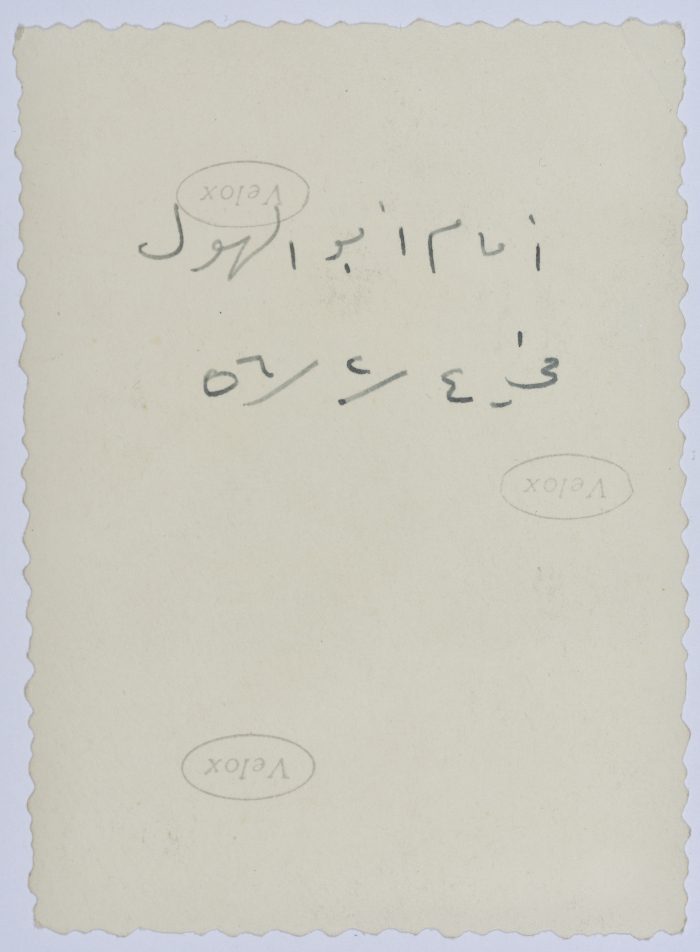 Velox
أمام أبو الهول
في ٤/٢/٥٦
Velox
Velox